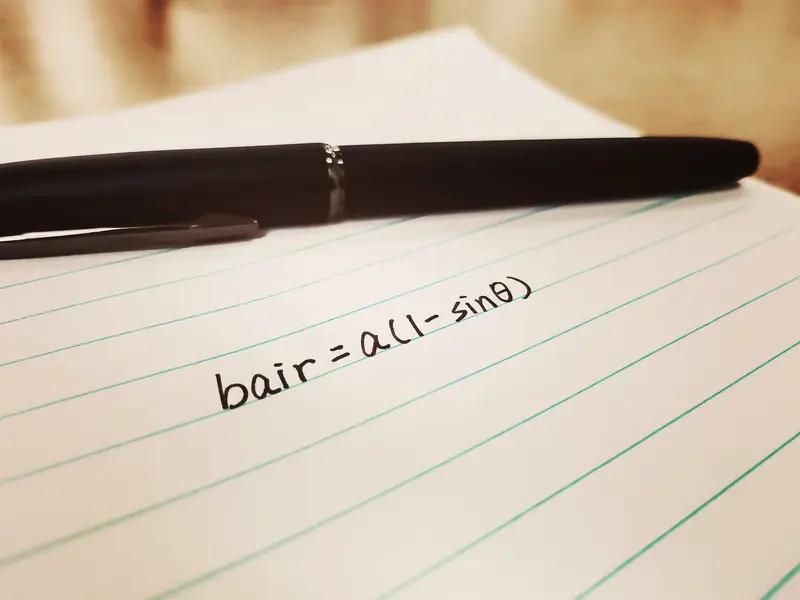 bair = a(1- sinθ)